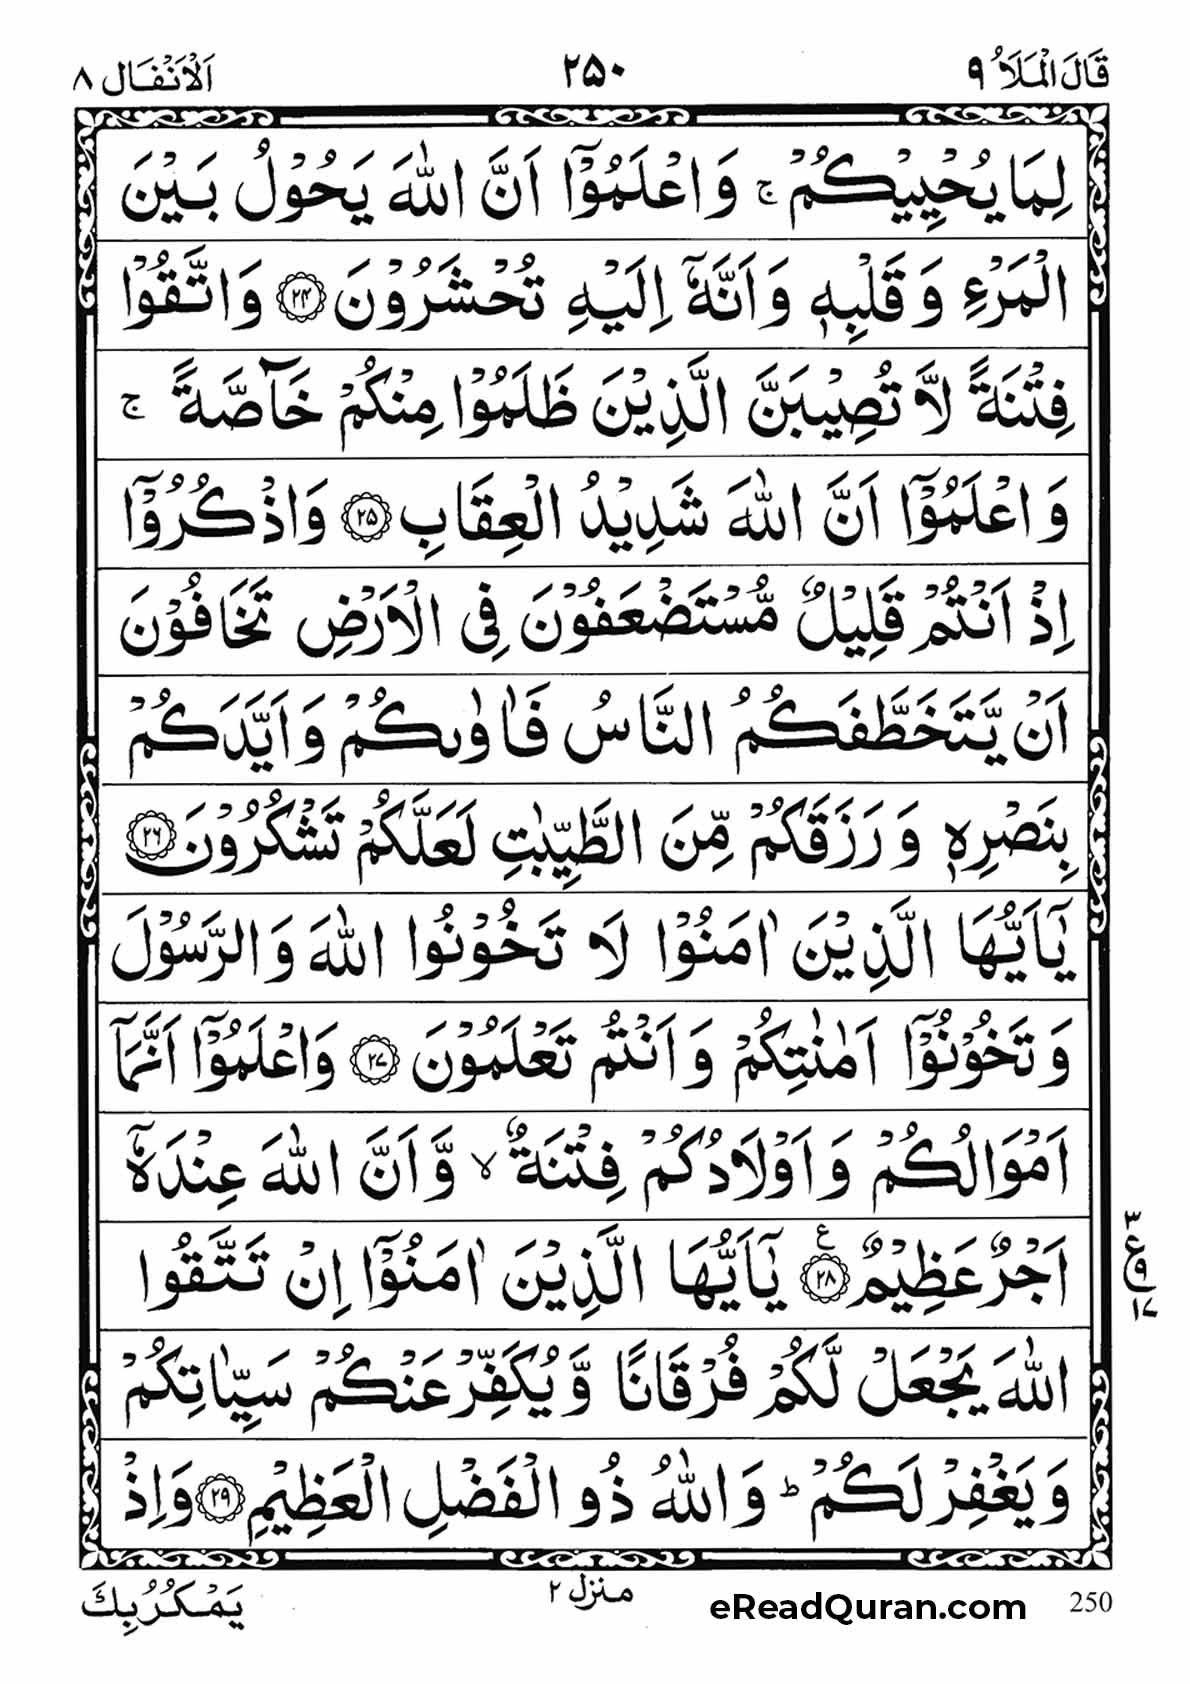 قَالَ الْمَلَاُ ۹
۲۵۰
اَلْاَنْفَال ۸
لِمَا يُحْيِيْكُمْ ۚ وَ اعْلَمُوْۤا اَنَّ اللّٰهَ يَحُوْلُ بَيْنَ
الْمَرْءِ وَ قَلْبِهٖ وَ اَنَّهٗۤ اِلَيْهِ تُحْشَرُوْنَ ﴿۲۴﴾ وَ اتَّقُوْا
فِتْنَةً لَّا تُصِيْبَنَّ الَّذِيْنَ ظَلَمُوْا مِنْكُمْ خَآصَّةً ۚ
وَ اعْلَمُوْۤا اَنَّ اللّٰهَ شَدِيْدُ الْعِقَابِ ﴿۲۵﴾ وَ اذْكُرُوْۤا
اِذْ اَنْتُمْ قَلِيْلٌ مُّسْتَضْعَفُوْنَ فِى الْاَرْضِ تَخَافُوْنَ
اَنْ يَّتَخَطَّفَكُمُ النَّاسُ فَاٰوٰىكُمْ وَ اَيَّدَكُمْ
بِنَصْرِهٖ وَ رَزَقَكُمْ مِّنَ الطَّيِّبٰتِ لَعَلَّكُمْ تَشْكُرُوْنَ ﴿۲۶﴾
يٰۤاَيُّهَا الَّذِيْنَ اٰمَنُوْا لَا تَخُوْنُوا اللّٰهَ وَ الرَّسُوْلَ
وَ تَخُوْنُوْۤا اَمٰنٰتِكُمْ وَ اَنْتُمْ تَعْلَمُوْنَ ﴿۲۷﴾ وَ اعْلَمُوْۤا اَنَّمَاۤ
اَمْوَالُكُمْ وَ اَوْلَادُكُمْ فِتْنَةٌ ۙ وَّ اَنَّ اللّٰهَ عِنْدَهٗۤ
اَجْرٌ عَظِيْمٌ ﴿۲۸﴾ ع يٰۤاَيُّهَا الَّذِيْنَ اٰمَنُوْۤا اِنْ تَتَّقُوا
اللّٰهَ يَجْعَلْ لَّكُمْ فُرْقَانًا وَّ يُكَفِّرْ عَنْكُمْ سَيِّاٰتِكُمْ
وَ يَغْفِرْ لَكُمْ ؕ وَ اللّٰهُ ذُو الْفَضْلِ الْعَظِيْمِ ﴿۲۹﴾ وَ اِذْ
۳
ع ۹
۱۷
يَمْكُرُ بِكَ
منزل ۲
eReadQuran.com
250